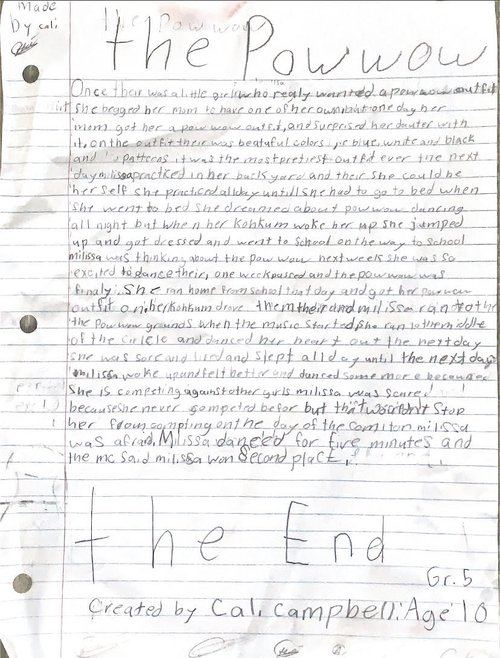 Made
By cali
the Pow wow
the Pow wow
Once their was a little girl who regly wanted a pow wow outfit
She begged her mom to have one of her own but one day her
mom got her a pow wow outfit, and surprised her dauter with
it, on the outfit their was beataful colors blue, white and black
and patterns it was the most pretiest outfit ever the next
day milissa practiced in her back yard and their she could be
her self she practiced all day untill she had to go to bed when
she went to bed she dreamed about pow wow dancing
all night but when her kohkum woke her up she jumped
up and got dressed and went to school on the way to school
milissa was thinking about the pow wow next week she was so
excited to dance their, one week passed and the pow wow was
finaly. She ran home from school that day and got her pow wow
outfit on, her kohkum drove them their and milissa ran to the
the pow wow grounds when the music started she ran to the middle
of the circle and danced her heart out the next day
she was sore and tired and slept all day until the next day
milissa woke up and felt better and danced some more because
She is competing against other girls milissa was scared
because she never competed befor but that wouldnt stop
her from compting on the day of the milissa
was afraid, Milissa danced for five minutes and
the mc said milissa won second place.
the End
Gr. 5
Created by Cali Campbell: Age 10